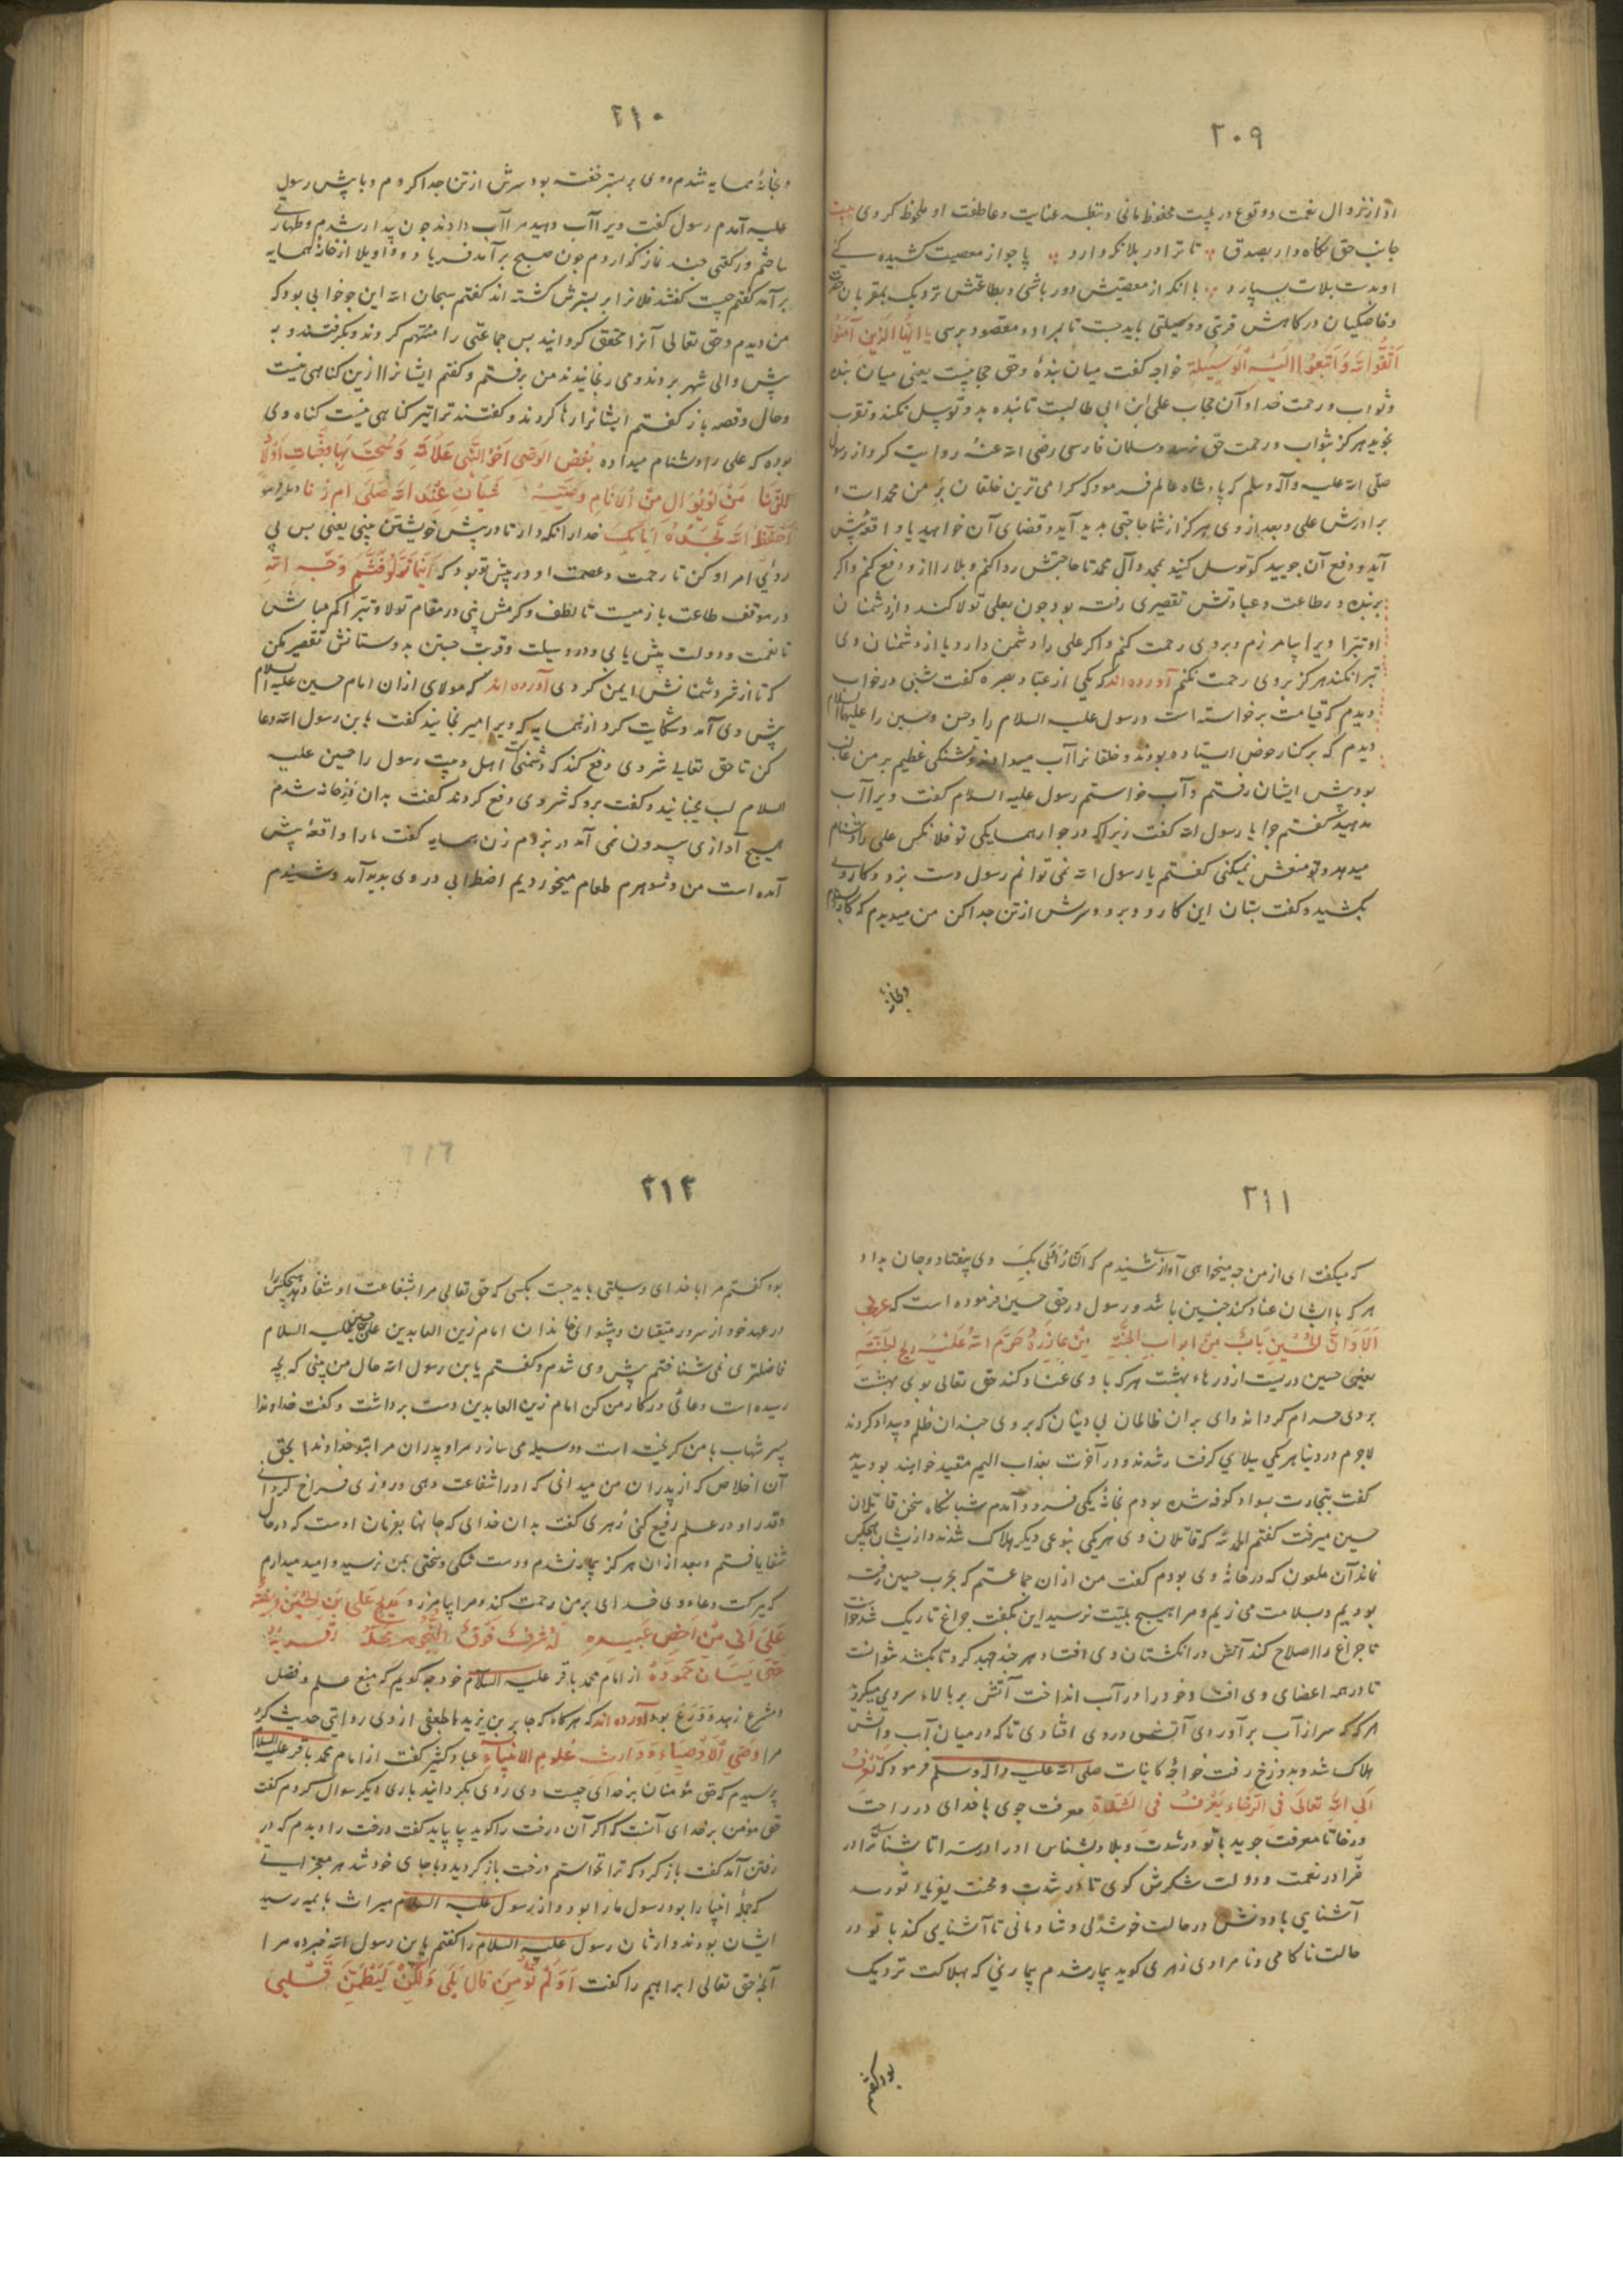 ٢٠٩
او از نزوال نعمت و وقوع در بلیت محفوظ مانی و بنظر عنایت و عاطفت او ملحوظ کردی بیت
جانب حق نکاه دار بصدق تا ترا در بلا نکه دارد پا جو از معصیت کشیده کنی
او بدست بلات بسپارد با آنکه از معصیتش دور باشی و بطاعتش نزدیک بمقربان حضرت
و خاصکیان درکاهش قربتی و وسیلتی باید جست تا بمراد و مقصود برسی یا ایها الذین آمنوا
اتقوا الله وابتغوا الیه الوسیلة خواجه کفت میان بندهٔ و حق حجابیست یعنی میان بنده
و ثواب و رحمت خدا و آن حجاب علی ابن ابی طالبست تا بنده بدو توسل نکند و تقرب
نجوید هرکز بثواب و رحمت حق نرسد و سلمان فارسی رضی الله عنه روایت کرد از رسول
صلی الله علیه وآله وسلم که پادشاه عالم فرمود که کرامی ترین خلقان بر من محمد است و
برادرش علی و بعد از وی هرکز از شما حاجتی بدید آید و قضای آن خواهید یا واقعهٔ پیش
آید و دفع آن جویید کو توسل کنید بمحمد و آل محمد تا حاجتش روا کنم و بلا را از و دفع کنم و اکر
بر بنده در طاعت و عبادتش تقصیری رفته بود چون بعلی تولا کند و از دشمنان
او تبرا ویرا بیامرزم و بر وی رحمت کنم و اکر علی را دشمن دارد یا از دشمنان وی
تبرا نکند هرکز بر وی رحمت نکنم آورده اند که یکی از عباد بصره کفت شبی در خواب
دیدم که قیامت برخواسته است و رسول علیه السلام را و حسن و حسین را علیهما السلام
دیدم که بر کنار حوض ایستاده بودند و خلقانرا آب میدادند و تشنکی عظیم بر من غالب
بود پیش ایشان رفتم و آب خواستم رسول علیه السلام کفت ویرا آب
مدهید کفتم چرا یا رسول الله کفت زیرا که در جوار همسایکی تو فلانکس علی را دشنام
میدهد و تو منعش نمیکنی کفتم یا رسول الله نمی توانم رسول دست بزد و کاردی
بکشید و کفت بستان این کارد و برو و سرش از تن جدا کن من میدیدم که کارد بستدم
و بخانهٔ
٢١٠
و بخانهٔ همسایه شدم و وی بر بستر خفته بود سرش از تن جدا کردم و با پیش رسول
علیه آمدم رسول کفت ویرا آب دهید مرا آب دادند چون بیدار شدم و طهارتی
ساختم و رکعتی چند نماز کذاردم چون صبح برآمد فریاد و واویلا از خانهٔ همسایه
برآمد کفتم چیست کفتند فلانرا بر بسترش کشته اند کفتم سبحان الله این چه خوابی بود که
من دیدم و حق تعالی آنرا محقق کردانید پس جماعتی را متهم کردند و بکرفتند و به
پیش والی شهر بردند و می رنجانیدند من برفتم و کفتم ایشانرا ازین کناهی نیست
و حال و قصه باز کفتم ایشانرا رها کردند و کفتند ترا نیز کناهی نیست کناه وی
بوده که علی را دشنام میداده بغض الوصی اخو النبی علامة
للزنا من لم یوال من الانام وصیه سیان عند الله صلی ام زنا
احفظ الله تجده امامک خدا را نکه دار تا در پیش خویشتن بینی یعنی پس
روئی امر او کن تا رحمت و عصمت او در پیش تو بود که اینما تولوا فثم وجه الله
در موقف طاعت باز میست تا لطف و کرمش بینی در مقام تولا و تبرا کم مباش
تا نعمت و دولت بیش یابی و در وسیلت و قربت جستن بدوستانش تقصیر مکن
که تا از شر دشمنانش ایمن کردی آورده اند که مولای ازان امام حسین علیه السلام
پیش وی آمد و شکایت کرد از همسایه که ویرا میرنجانید کفت یابن رسول الله دعا
کن تا حق تعالی شر وی دفع کند که دشمنی اهل بیت رسول را حسین علیه
السلام لب بجنبانید و کفت برو که شر وی دفع کردند کفت بدان در خانه شدم
هیچ آوازی بیرون نمی آمد در بزدم زن همسایه کفت ما را واقعهٔ پیش
آمده است من و شوهرم طعام میخوردیم اضطرابی در وی بدید آمد و شنیدم
٢١١
که میکفت ای از من چه میخواهی آوازی شنیدم که النار اولی بک وی بیفتاد و جان بداد
هر که با ایشان عناد کند چنین باشد و رسول در حق حسین فرموده است که عربی
الا وان الحسین باب من ابواب الجنة من عانده حرم الله علیه ریح الجنة
یعنی حسین دریست از درهاء بهشت هر که با وی عناد کند حق تعالی بوی بهشت
بر وی حرام کرداند وای بران ظالمان بی دینان که بر وی چندان ظلم و بیداد کردند
لاجرم در دنیا هر یکی ببلایی کرفتار شدند و در آخرت بعذاب الیم مقید خواهند بود
کفت بتجارت بسواد کوفه شده بودم بخانهٔ یکی فرود آمدم شبانکاه سخن قاتلان
حسین میرفت کفتم الحمد لله که قاتلان وی هر یکی بنوعی دیکر هلاک شدند و از ایشان هیچکس
نماند آن ملعون که در خانهٔ وی بودم کفت من ازان جماعتم که بحرب حسین رفته
بودیم و بسلامت می زیم و مرا هیچ بلیت نرسید این بکفت چراغ تاریک شد خواست
تا چراغ را اصلاح کند آتش در انکشتان وی افتاد هر چند جهد کرد تا بکشد نتوانست
تا در همه اعضای وی افتاد خود را در آب انداخت آتش بر بالاء سر وی میکردید
هر که که سر از آب برآوردی آتش در وی افتادی تا که در میان آب و آتش
هلاک شد و بدوزخ رفت خواجهٔ کاینات صلی الله علیه وآله وسلم فرمود که تعرف
الی الله تعالی فی الرخاء یعرفک فی الشدة معرفت جوی با خدای در راحت
و رخا تا معرفت جوید با تو در شدت و بلا و بشناس او را در سرا تا بشناسد ترا در
ضرا در نعمت و دولت شکرش کوی تا در شدت و محنت بفریاد تو رسد
آشنایی با دوستش در حالت خوشدلی و شادمانی تا آشنایی کند با تو در
حالت ناکامی و نامرادی زهری کوید بیمار شدم بیماریئی که بهلاکت نزدیک
بود کفتم
٢١٢
بود کفتم مرا با خدای وسیلتی باید جست بکسی که حق تعالی مرا بشفاعت او شفا دهد هیچکس را
در عهد خود از سرور متقیان و پیشوای خاندان امام زین العابدین علی بن حسین علیه السلام
فاضلتری نمی شناختم پیش وی شدم و کفتم یابن رسول الله حال من بینی که بچه
رسیده است دعائی در کار من کن امام زین العابدین دست برداشت و کفت خداوندا
پسر شهاب با من کریخته است و وسیله می سازد مرا و پدران مرا بتو خداوندا بحق
آن اخلاص که از پدران من میدانی که او را شفاعت دهی و روزی فراخ کردانی
و قدر او در علم رفیع کنی زهری کفت بدان خدای که جانها بفرمان اوست که در حال
شفا یافتم و بعد ازان هرکز بیمار نشدم و دست تنکی و سختی بمن نرسید و امید میدارم
که ببرکت دعاء وی خدای بر من رحمت کند و مرا بیامرزد
از امام محمد باقر علیه السلام خود چه کویم که منبع علم و فضل
و مشرع زهد و ورع بود آورده اند که هرکاه که جابر بن یزید جعفی از وی روایتی حدیث کرد
مرا وصی الاوصیاء و وارث علوم الانبیاء عباد کثیر کفت از امام محمد باقر علیه السلام
پرسیدم که حق مؤمنان بر خدای چیست وی روی بکردانید باری دیکر سوال کردم کفت
حق مؤمن بر خدای آنست که اکر آن درخت را کوید بیا بیاید کفت درخت را دیدم که در
رفتن آمد کفت باز کرد که ترا نخواستم درخت باز کردید و با جای خود شد هر معجزاتی
که جملهٔ انبیا را بود رسول ما را بود و از رسول علیه السلام میراث بایمه رسید
ایشان بودند وارثان رسول علیه السلام را کفتم یابن رسول الله خبر ده مرا
آنچه حق تعالی ابراهیم را کفت اولم تؤمن قال بلی ولکن لیطمئن قلبی